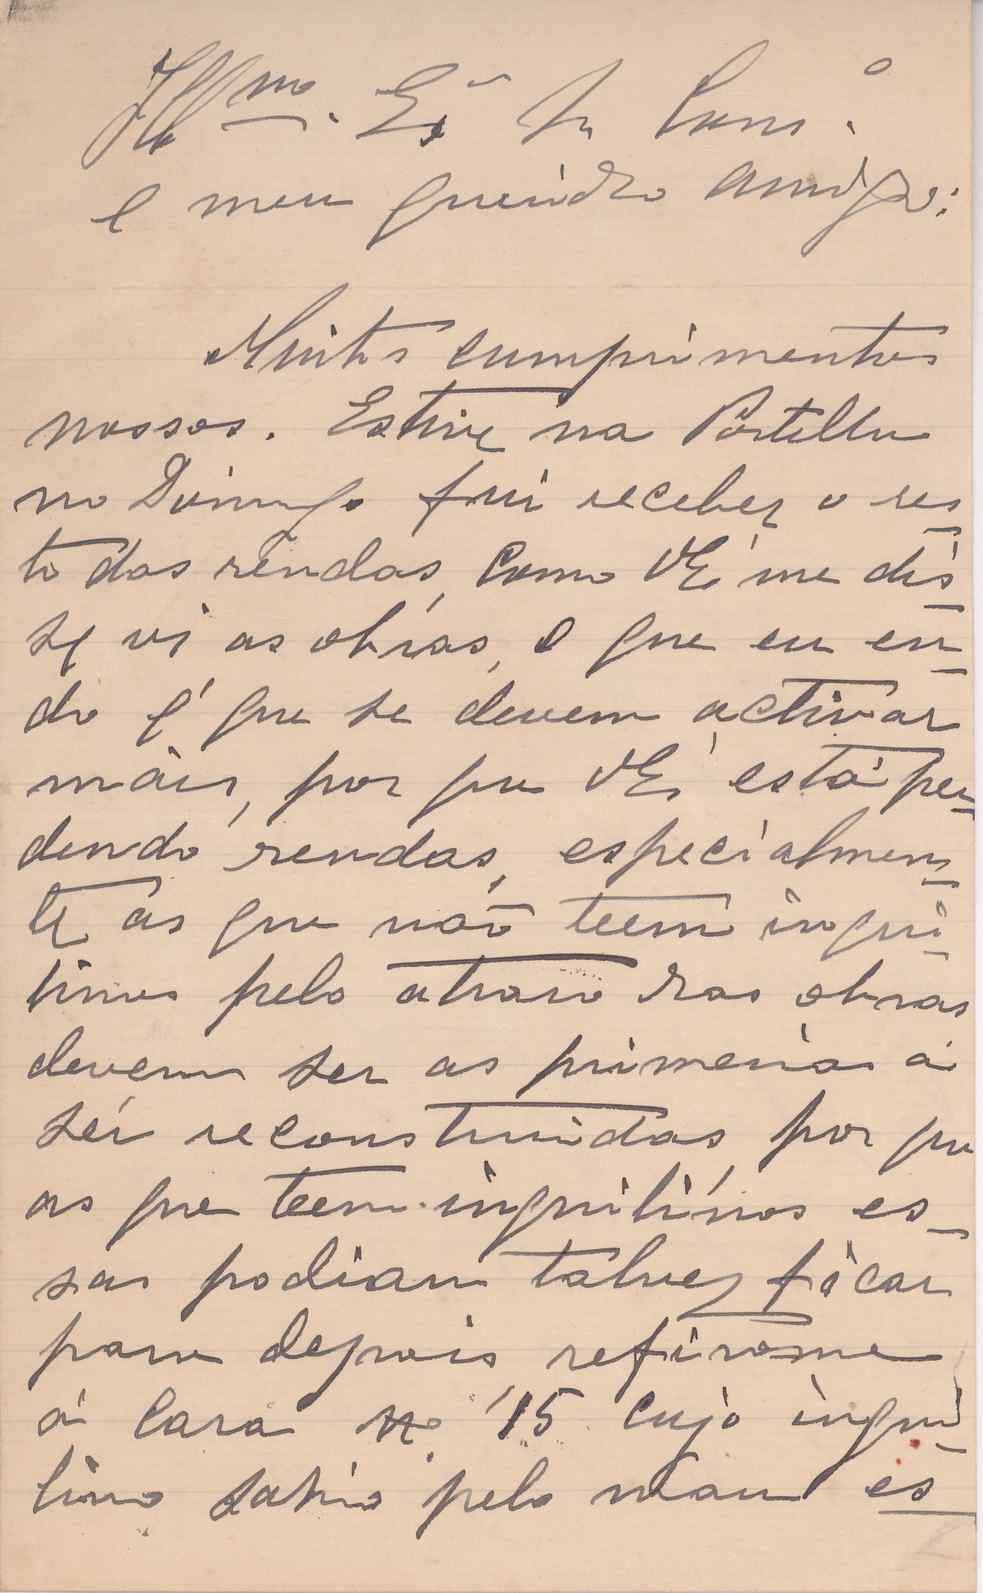 Illmo. Ex Sr Coni.
e meu querido amigo:
Muitos cumprimentos
nossos. Estive na Portella
no Domingo fui receber o res
to das rendas, como VE me dis
se vi as obras, o que eu en
do é que se devem activar
mais, por que VE está per
dendo rendas, especialmen
te as que não teem inqui
linos pelo atraso das obras
devem ser as primeiras a
ser reconstruidas por que
as que teem inquilinos es
sas podiam talvez ficar
para depois, refirome
á casa no 15 cujo inqui
lino sahio pelo mau es